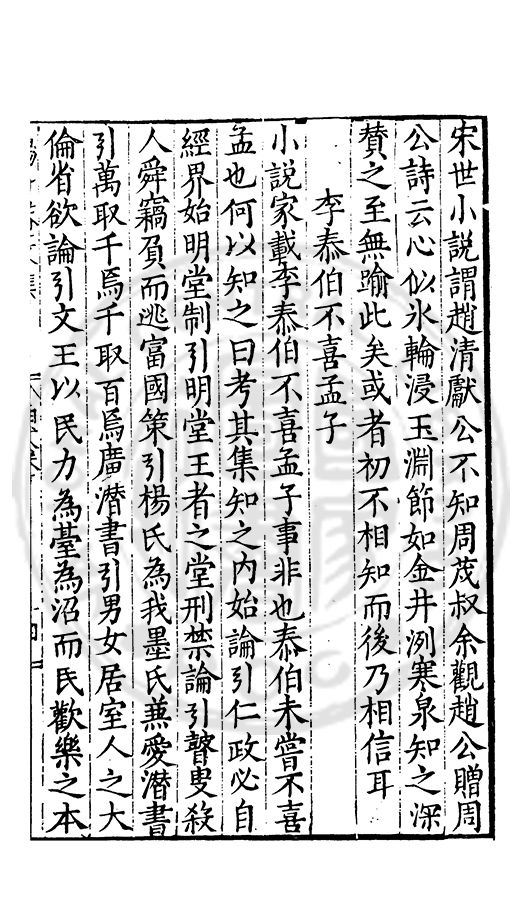 宋世小說謂趙清獻公不知周茂叔余觀趙公贈周
公詩云心似氷輪浸玉淵節如金井冽寒泉知之深
賛之至無踰此矣或者初不相知而後乃相信耳
李泰伯不喜孟子
小說家載李泰伯不喜孟子事非也泰伯未嘗不喜
孟也何以知之曰考其集知之内始論引仁政必自
經界始明堂制引明堂王者之堂刑禁論引瞽叟殺
人舜竊負而逃富國策引楊氏為我墨氏兼愛潛書
引萬取千焉千取百焉廣潛書引男女居室人之大
倫省欲論引文王以民力為臺為沼而民歡樂之本